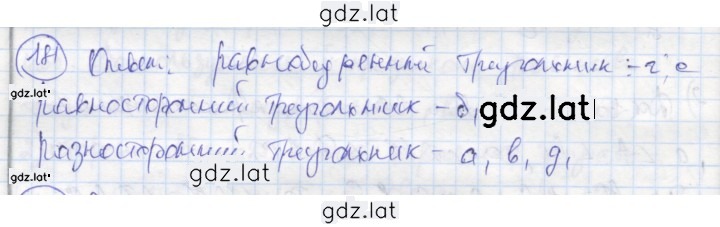 gdz.lat
181 Ответ: равнобедренный треугольник :- г; е
равносторонний треугольник - б,
gdz.lat
gdz.lat
разносторонний треугольник - а, в, д,
gdz.lat
gdz.lat